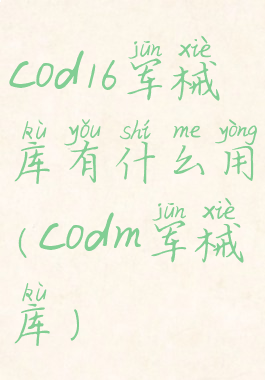 jūn xiè
cod16军械
kù yǒu shí me yòng
库有什么用
jūn xiè
(codm军械
kù
库)